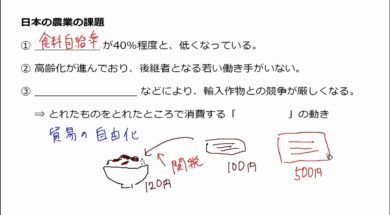 日本の農業の課題
① 食料自給率 が40%程度と、低くなっている。
② 高齢化が進んでおり、後継者となる若い働き手がいない。
③ などにより、輸入作物との競争が厳しくなる。
⇒ とれたものをとれたところで消費する「 」の動き
貿易の自由化
関税
120円
100円
500円